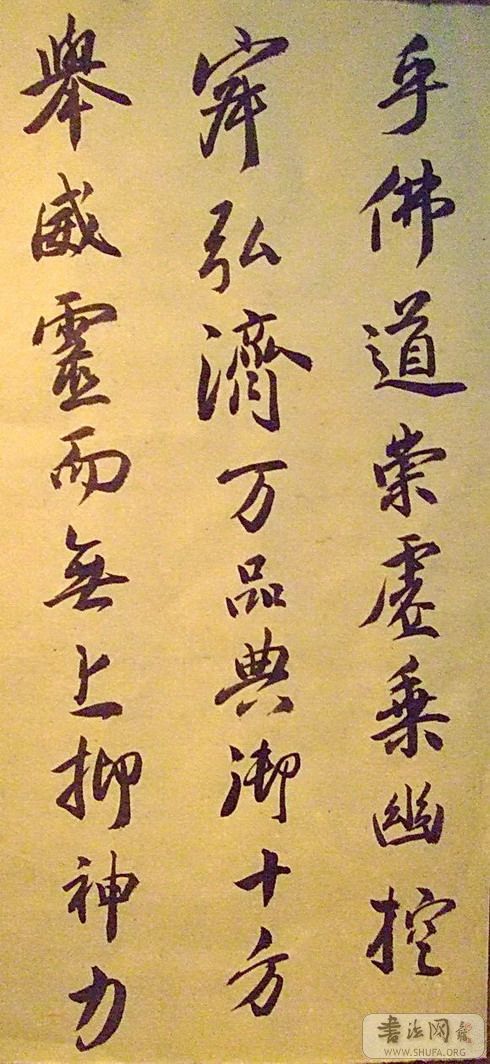 乎佛道崇虛乘幽控
寂弘濟万品典御十方
舉威靈而無上抑神力
書法网
WWW.SHUFA.ORG